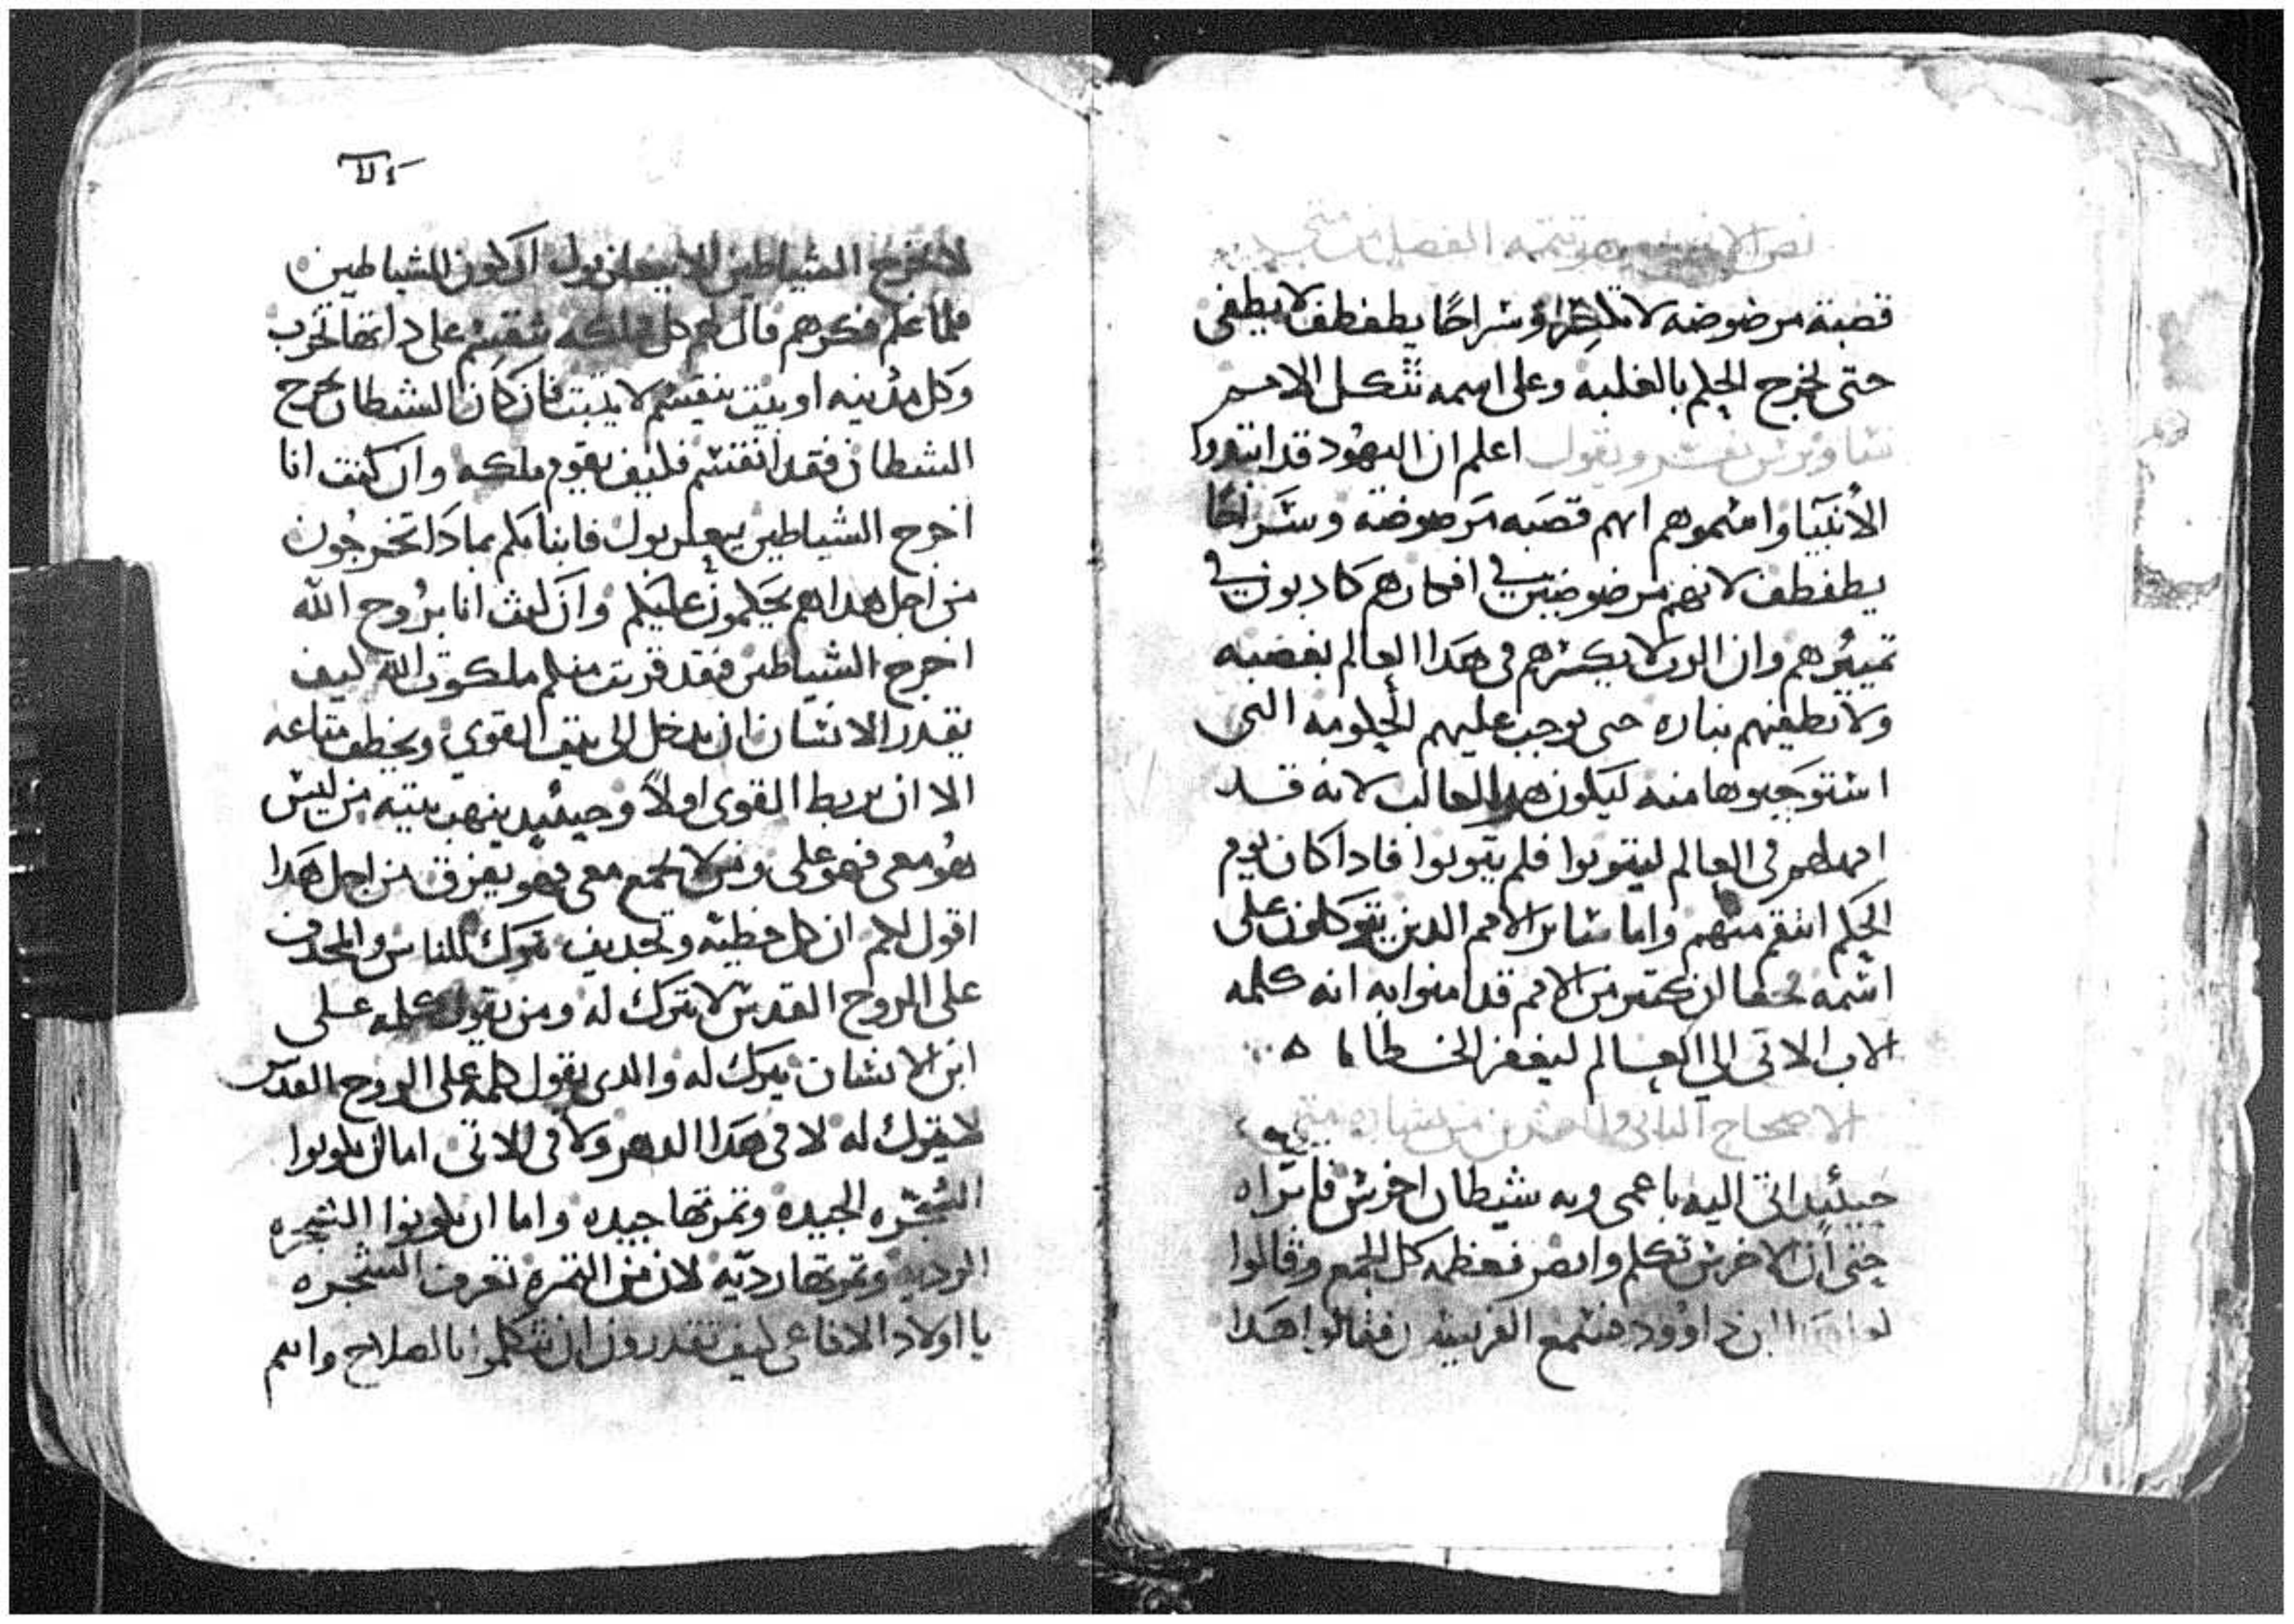 نص الانجيل وهو تتمه الفصل من متى
قصبة مرضوضه لا تكسر وسراجًا يطفطف لا يطفى
حتى يخرج الحكم بالغلبه وعلى اسمه تتكل الامم
ساويرس يفسر ويقول اعلم ان اليهود قد
الأنبيا وا هم انهم قصَبه مَرضوضه وسَراجًا
يطفطف لانهم مرضوضين في افكارهم كادبون في
تمييزهم وان الرب لا يكسرهم في هَدا العالم بغضبه
ولا يطفيهم بناره حتى يوجب عليهم الحكومه التى
استوجبوها منه ليكون هدا لانه قد
امهلهم في العالم ليتوبوا فلم يتوبوا فادا كان يوم
الحكم انتقم منهم واما ساير الامم الدين يتوكلون على
اسمه فحقا ان كتير من الامم قد امنوا به انه كلمه
الاب الاتى الى العالم ليغفر الخطايا
الاصحاح التانى والعشرين من بشاره متى
حينئيد اتى اليه باعمى وبه شيطان اخرس فابراه
حتى أن الاخرس تكلم وابصر فعظمه كل الجمع وقالوا
لعل هدا ابن داوود فسمع الفريسيون فقالوا هَدا
ⲣⲓⲁ
لا يخرج الشياطين الا ببعلزبول اركون الشياطين
فلما علم فكرهم قال لهم كل مملكه تنقسم على داتها تخرب
وَكل مدينه او بيت ينقسم لا يتبت فان كان الشيطان يخرج
الشيطان فقد انقسم فكيف يقوم ملكه وان كنت انا
اخرج الشياطين ببعلزبول فابناكم بمادَا تخرجُون
من اجل هدا هم يحَكمون عليكم وان كنت انا برُوح الله
اخرج الشياطين فقد قربت منكم ملكوت الله كيف
يقدر الانسان ان يدخل الى بيت القوي ويخطف متاعه
الا ان يربط القوى اولاً وحينئيد ينهب بيته من ليس
هو معى فهو على ومن لا يجمع معى فهو يفرق من اجل هَدا
اقول لكم ان كل خطيه وتجديف تترك للناس والمجدف
على الروح القدس لا تترك له ومن يقول كلمه على
ابن الانسان يترك له والدى يقول كلمه على الروح القدس
لا يترك له لا في هَدا الدهر ولا في الاتى اما ان تكونوا
الشجره الجيده وتمرتها جيده واما ان تكونوا الشجره
الرديه وتمرتها رديّه لان من التمره تعرف الشجره
يا اولاد الافاعى كيف تقدرون ان تتكلموا بالصلاح وانتم